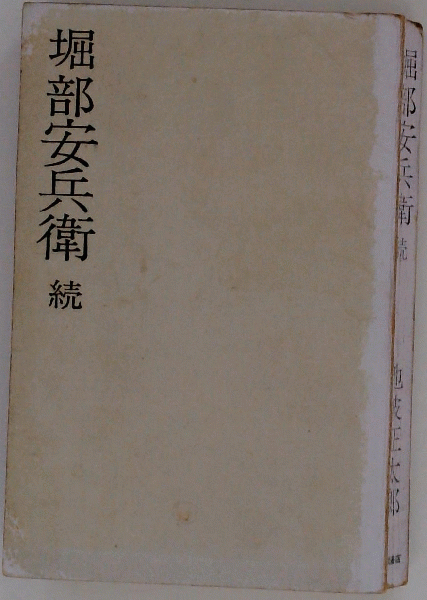 堀部安兵衛
続
堀部安兵衛
続
池波正太郎